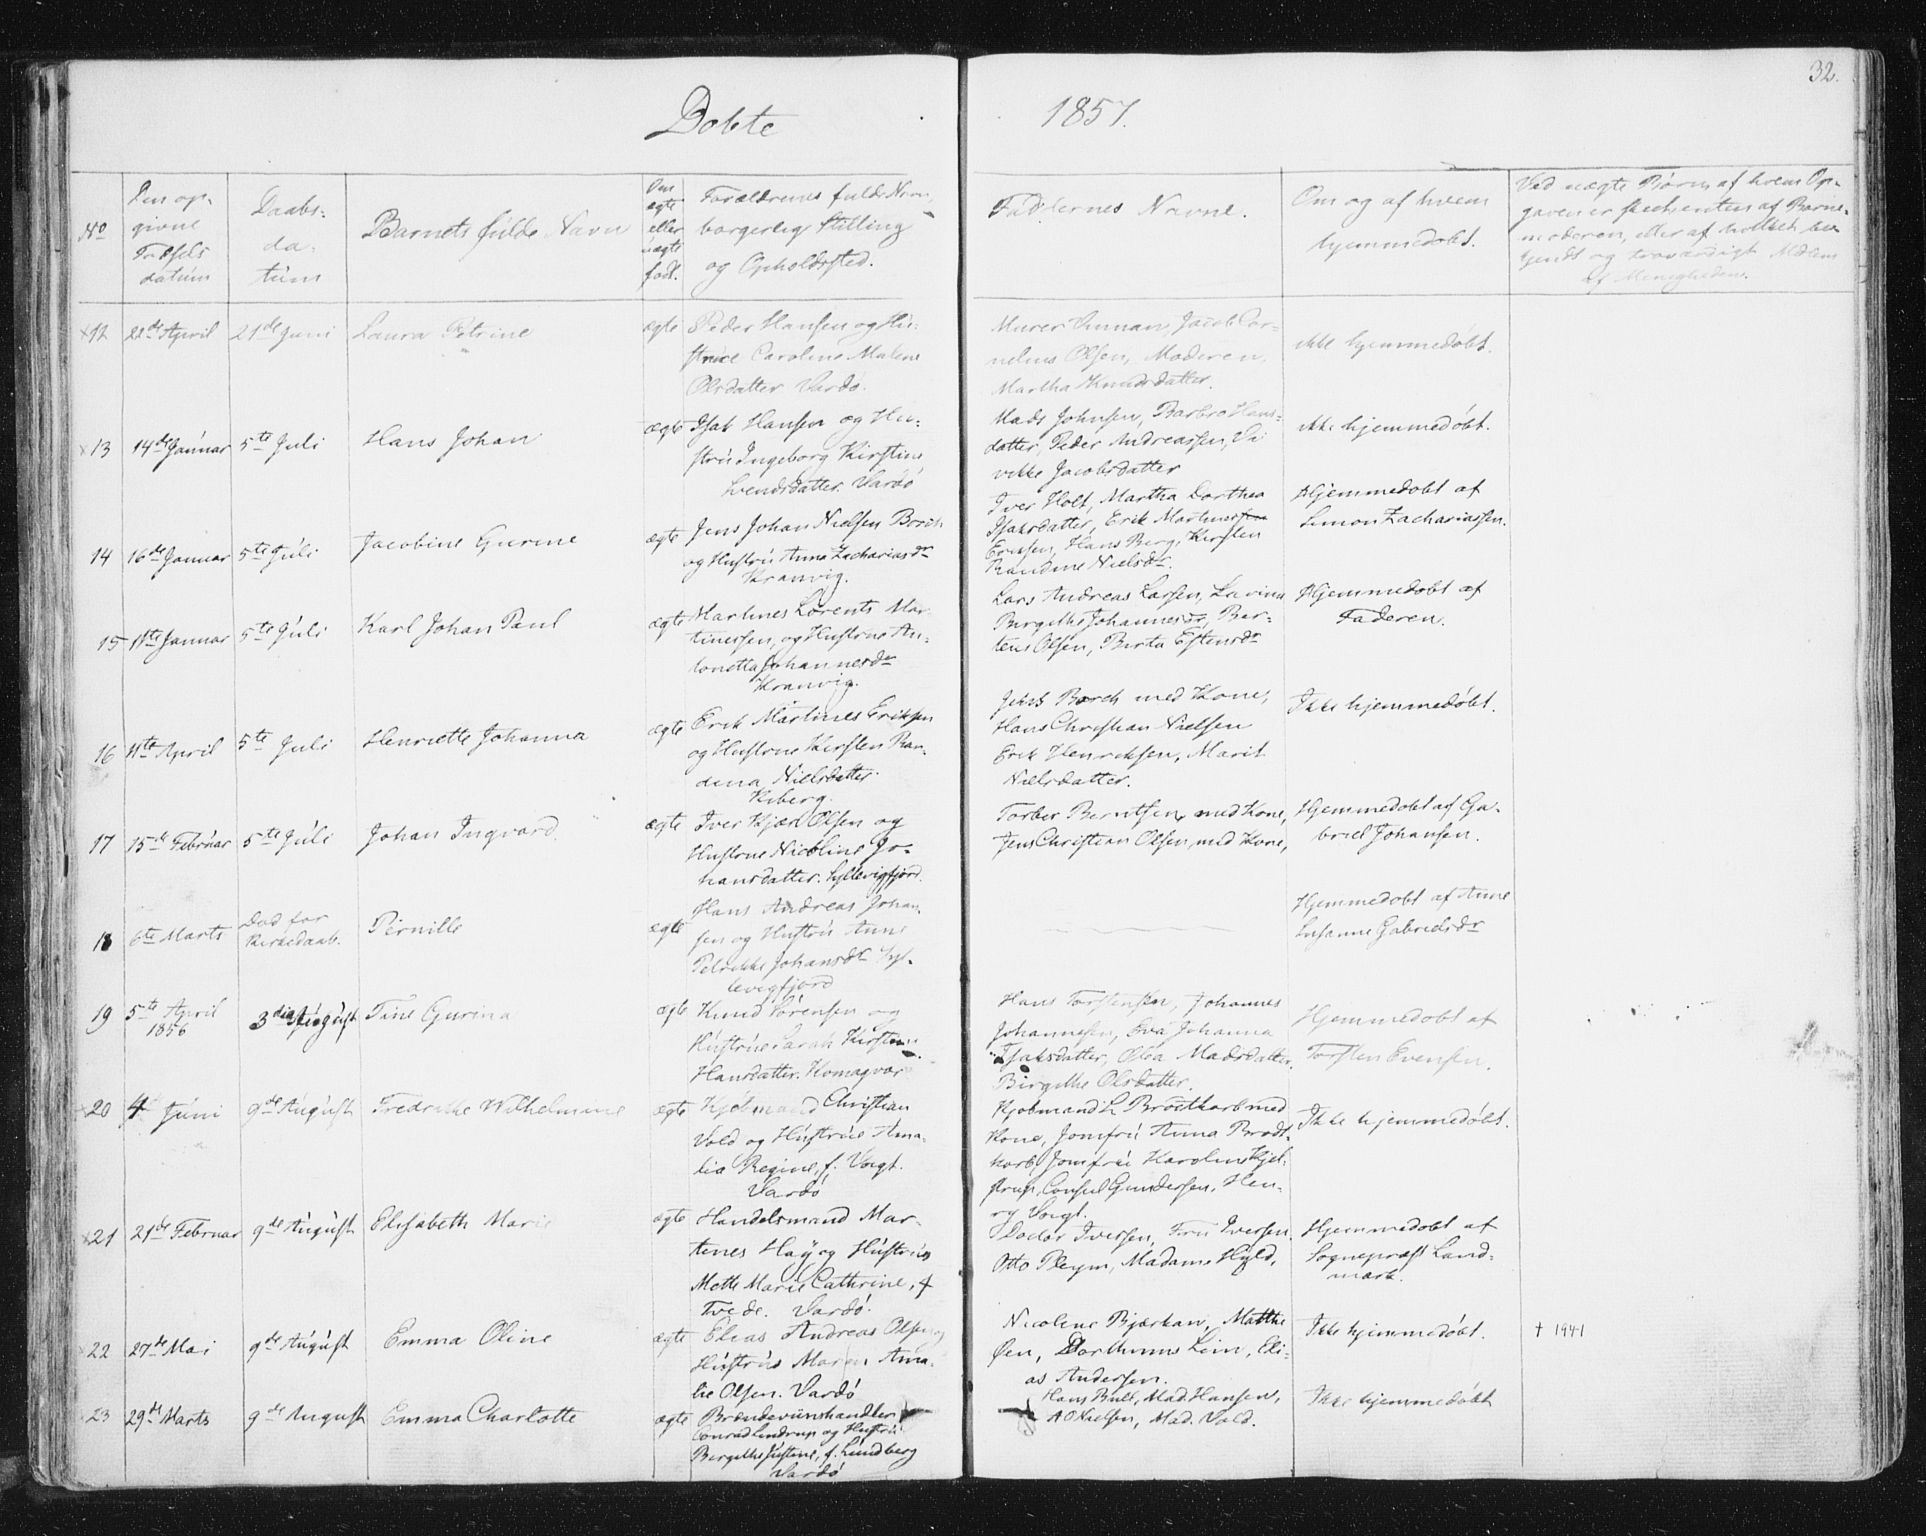 32.
Döbte 1857.
No
Den op-
givne
Födsels
datum
Daabs-
da-
tum
Barnets fulde Navn
Om
ægte
eller
uægte
født.
Forældrenes fulde Navn,
borgerlig Stilling
og Opholdssted.
Faddernes Navne.
Om og af hvem
hjemmedöbt.
Ved uægte Börn af hvem Op-
gaven er skeet enten af Barne-
moderen, eller af hvilket be
kjendt og troværdigt Medlem
af Menigheden.
×12 22de April 21de Juni Laura Petrine ægte Peder Hansen og Hu-
strue Caroline Malene
Olsdatter Vardö.
Murer Unman, Jacob Cor-
nelius Olsen, Moderen,
Martha Knudsdatter.
ikke hjemmedöbt.
×13 14de Januar 5te Juli Hans Johan ægte Isak Hansen og Hu-
stru Ingeborg Kirstine
Svendsdatter Vardö
Mads Johnsen, Barbro Hans-
datter, Peder Andreassen, Vi
vikke Jacobsdatter
ikke hjemmedöbt.
14 16de Januar 5te Juli Jacobine Gurine ægte Jens Johan Nielsen Borch
og Hustru Anna Zachariasdr
Kramvig.
Iver Holt, Martha Dorthea
Isaksdatter, Erik Martinus
Eriksen, Hans Berg, Kirsten
Randine Nielsdr.
Hjemmedöbt af
Simon Zachariassen.
15 11te Januar 5te Juli Karl Johan Paul ægte Martines Lorents Mar
tinessen, og Hustrue An-
tonetta Johannesdr
Kramvig.
Lars Andreas Larsen, Lavina
Bergithe Johannesdr, Ber-
teus Olsen, Berta Estensdr
Hjemmedöbt af
Faderen.
16 11te April 5te Juli Henriette Johanna ægte Erik Martines Eriksen
og Hustrue Kirsten Ran-
dina Nielsdatter.
Kiberg.
Jakob Borch med Kone,
Hans Christian Nielsen
Erik Henriksen, Marit
Nielsdatter.
Ikke hjemmedöbt.
17 15de Februar 5te Juli Johan Ingvard ægte Iver Kjær Olsen og
Hustrue Nicoline Jo-
hansdatter. Syltevigfjord.
Torber Berntsen med Kone,
Jens Christian Olsen, med Kone,
Hjemmedöbt af Ga-
briel Johansen.
18 6te Marts Död för
Kirkedaab. Pernille ægte Hans Andreas Johan-
sen og Hustru Anne
Petrikke Johansdr Syl-
tevigfjord
Hjemmedöbt af Anne
Susanne Gabrielsdr
19 5te April
1856 3die August Tine Gurina ægte Knud Sörensen og
Hustrue Sarah Kirstine
Hansdatter. Komagvær
Hans Torstensen, Johannes
Johannesen, Eva Johanna
Isaksdatter, Olva Madsdatter,
Birgithe Olsdatter.
Hjemmedöbt af
Torsten Evensen.
×20 4 Juni 9de August Fredrikke Wilhelmine ægte Kjöbmand Christian
Vold og Hustrue Ama-
lia Regine, f. Voigt.
Vardö
Kjöbmand L Brodtkorb med
Kone, Jomfru Anna Brodt-
korb, Jomfru Karoline Kjel-
strup, Consul Gundersen, Hen-
ry Voigt.
Ikke hjemmedöbt.
×21 21de Februar 9de August Elisabeth Marie ægte Handelsmand Mar-
tines Hay og Hustrue
Mette Marie Cathrine, f
Tvede. Vardö.
Doctor Iversen, Fru Iversen,
Otto Pleym, Madame Hyld,
Hjemmedöbt af
Sognepræst Land-
mark.
22 27de Mai 9de August Emma Oline ægte Elias Andreas Olsen og
Hustrue Maren Ama-
lie Olsen. Vardö
Nicoline Bjerkan, Matthe
Øen, Dorthinus Lein, Eli-
as Andersen.
Ikke hjemmedöbt.
† 1941
23 29de Marts 9de August Emma Charlotte ægte Brændeviinshandler
Conrad Lindrup og Hustru
Bergithe Justine, f. Lundberg
Vardö
Hans Bull, Mad. Hansen,
A O Nielsen, Mad. Vold.
Ikke hjemmedöbt